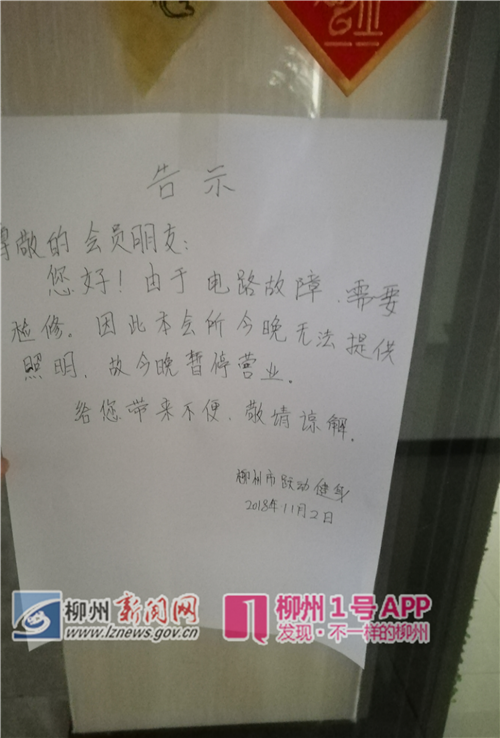 告示
尊敬的会员朋友：
您好！由于电路故障，需要
检修。因此本会所今晚无法提供
照明，故今晚暂停营业。
给您带来不便，敬请谅解。
柳州市跃动健身
2018年11月2日
柳州新闻网
www.lznews.gov.cn
柳州1号APP
发现·不一样的柳州